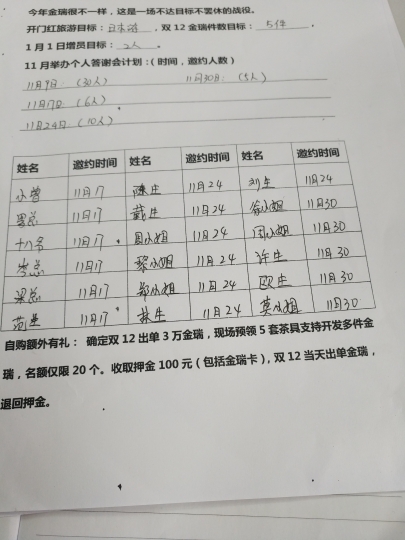 今年金瑞很不一样，这是一场不达目标不罢休的战役。
开门红旅游目标：日本游，双12金瑞件数目标：5件。
1月1日增员目标：2人。
11月举办个人答谢会计划：（时间，邀约人数）
11月9日：（30人） 11月30日：（5人）
11月17日：（6人）
11月24日：（10人）
姓名 邀约时间 姓名 邀约时间 姓名 邀约时间
小曾 11月17 陳生 11月24 刘生 11月24
11月17 戴生 11月24 徐小姐 11月30
11月17 周小姐 11月24 周小姐 11月30
岑总 11月17 黎小姐 11月24 许生 11月30
梁总 11月17 郑小姐 11月24 欧生 11月30
范生 11月17 林生 11月24 莫小姐 11月30
自购额外有礼： 确定双12出单3万金瑞，现场预领5套茶具支持开发多件金
瑞，名额仅限20个。收取押金100元（包括金瑞卡），双12当天出单金瑞，
退回押金。